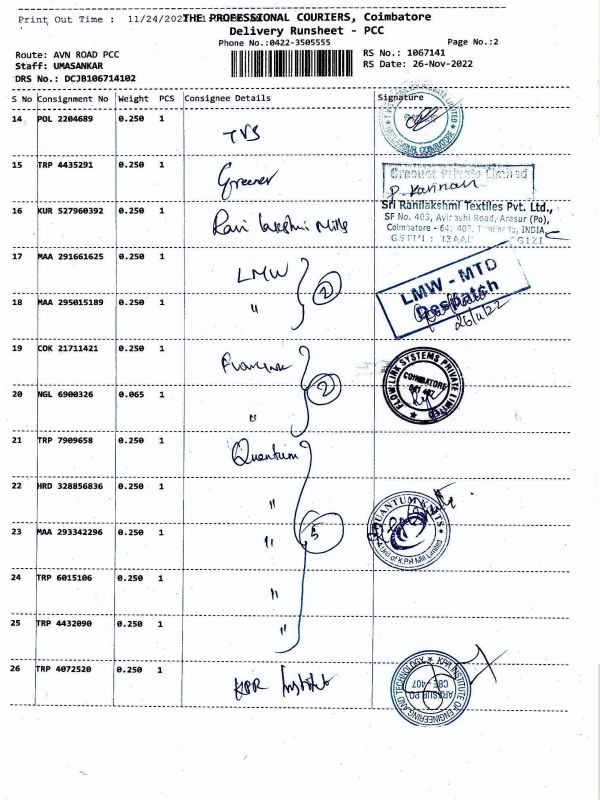 Print Out Time : 11/24/202 THE PROFESSIONAL COURIERS, Coimbatore
Delivery Runsheet - PCC
Phone No.:0422-3505555 Page No.:2
Route: AVN ROAD PCC RS No.: 1067141
Staff: UMASANKAR RS Date: 26-Nov-2022
DRS No.: DCJB106714102
S No Consignment No Weight PCS Consignee Details Signature
14 POL 2204689 0.250 1 TVS
15 TRP 4435291 0.250 1 Greener
Private Limited
16 KUR 527960392 0.250 1 Rani lakshmi Mills
Sri Ranilakshmi Textiles Pvt. Ltd.,
SF No. 403, Avinashi Road, Arasur (Po),
Coimbatore - 641 407, INDIA.
17 MAA 291661625 0.250 1 LMW
2
LMW - MTD
Despatch
26/11/22
18 MAA 295015189 0.250 1 "
19 COK 21711421 0.250 1
2
FLOW LINK SYSTEMS PRIVATE LIMITED
COIMBATORE
641 407
20 NGL 6900326 0.065 1 "
21 TRP 7909658 0.250 1 Quantum
22 HRD 328856836 0.250 1 "
23 MAA 293342296 0.250 1 "
5
QUANTUM KNITS
A Unit of K.P.R Mill Limited
24 TRP 6015106 0.250 1 "
25 TRP 4432090 0.250 1 "
26 TRP 4072520 0.250 1 KPR Institute
KPR INSTITUTE OF ENGINEERING AND TECHNOLOGY
ARASUR PO
CBE - 407